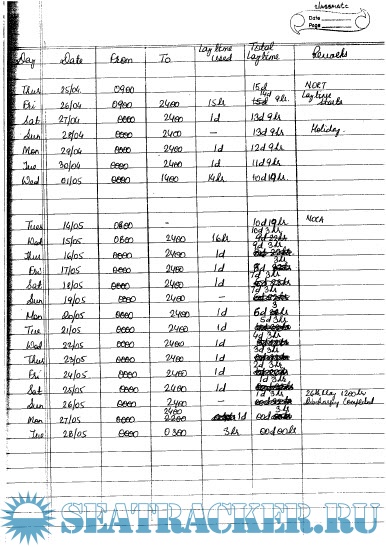 classmate
Date
Page
Day Date From To Laytime used Total Laytime Remarks
Thur 25/04 0900 15d NORT
Fri 26/04 0900 2400 15hr 14d 9hr. Laytime starts
Sat 27/04 0000 2400 1d 13d 9hr
Sun 28/04 0000 2400 — 13d 9hr Holiday.
Mon 29/04 0000 2400 1d 12d 9hr
Tue 30/04 0000 2400 1d 11d 9hr
Wed 01/05 0000 1400 14hr 10d 19hr.
Tues 14/05 0800 - 10d 19hr NOCA
Wed 15/05 0800 2400 16hr 10d 3hr
Thu 16/05 0000 2400 1d 9d 3hr
Fri 17/05 0000 2400 1d 8d 3hr
Sat 18/05 0000 2400 1d 7d 3hr
Sun 19/05 0000 2400 — 7d 3hr
Mon 20/05 0000 2400 1d 6d 3hr
Tue 21/05 0000 2400 1d 5d 3hr
Wed 22/05 0000 2400 1d 4d 3hr
Thur 23/05 0000 2400 1d 3d 3hr
Fri 24/05 0000 2400 1d 2d 3hr
Sat 25/05 0000 2400 1d 1d 3hr
Sun 26/05 0000 2400 — 1d 3hr 26th May 1200hr Discharging Completed
Mon 27/05 0000 2400 1d 3hr
Tue 28/05 0000 0300 3hr 00d 00hr
SEATRACKER.RU